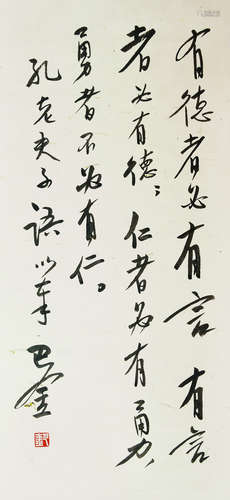 有德者必有言有言
者必有德；仁者必有勇，
勇者不必有仁。
孔老夫子语以奉 巴金